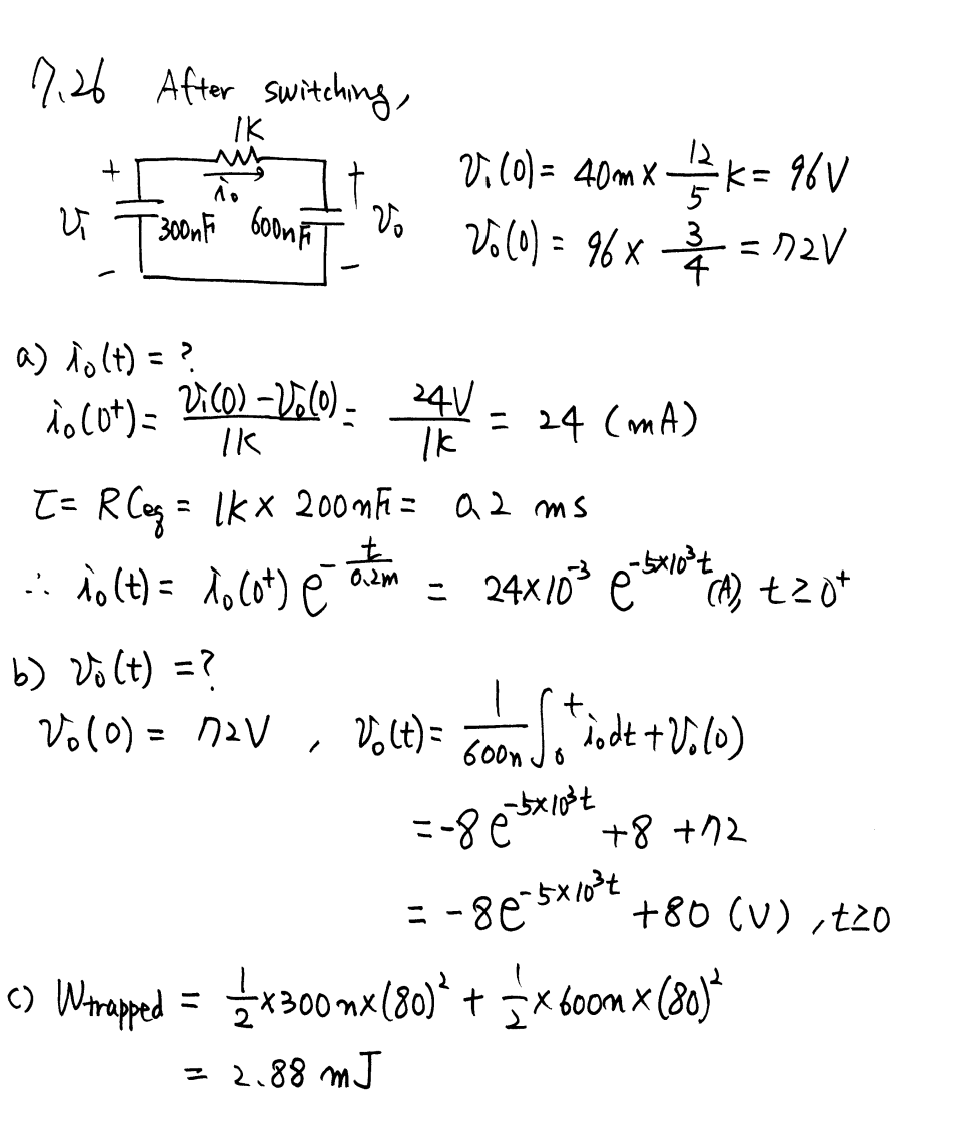 7.26 After switching,
1K
+ + v₁(0) = 40m × 12/5 k = 96V
i₀
v₁ 300nF 600nF v₀
v₀(0) = 96 × 3/4 = 72V
- -
a) i₀(t) = ?
i₀(0⁺) = (v₁(0) - v₀(0))/1K = 24V/1k = 24 (mA)
τ = RCeq = 1k × 200nF = 0.2 ms
∴ i₀(t) = i₀(0⁺) e^(-t/0.2m) = 24×10⁻³ e^(-5×10³t) (A), t ≥ 0⁺
b) v₀(t) = ?
v₀(0) = 72V , v₀(t) = 1/600n ∫₀ᵗ i₀dt + v₀(0)
= -8e^(-5×10³t) + 8 + 72
= -8e^(-5×10³t) + 80 (V) , t≥0
c) Wtrapped = 1/2 × 300n × (80)² + 1/2 × 600n × (80)²
= 2.88 mJ